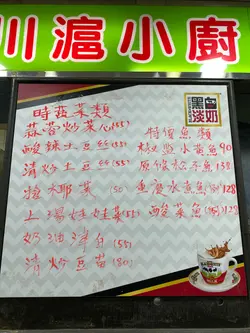 川滬小廚
黑白
淡奶
時蔬菜類
蒜蓉炒菜心(55)
酸辣土豆丝(55)
清炒土豆丝(55)
椰菜(50)
上湯娃娃菜(55)
奶油津白(55)
清炒豆苗(80)
特價魚類
椒鹽小黃魚90
原條松禾魚138
魚(斑)128
酸菜魚(斑)128